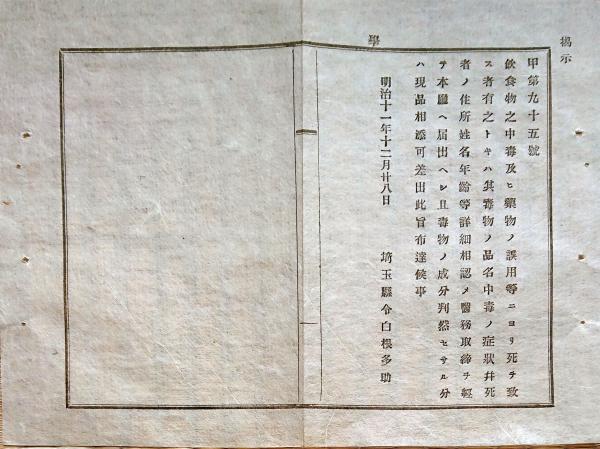 揭示
甲第九十五號
飮食物之中毒及ヒ藥物ノ誤用等ニヨリ死ヲ致
ス者有之トキハ其毒物ノ品名中毒ノ症狀幷死
者ノ住所姓名年齡等詳細相認メ醫務取締ヲ經
テ本廳ヘ屆出ヘシ且毒物ノ成分判然セサル分
ハ現品相添可差出此旨布達候事
明治十一年十二月廿八日
埼玉縣令白根多助
學